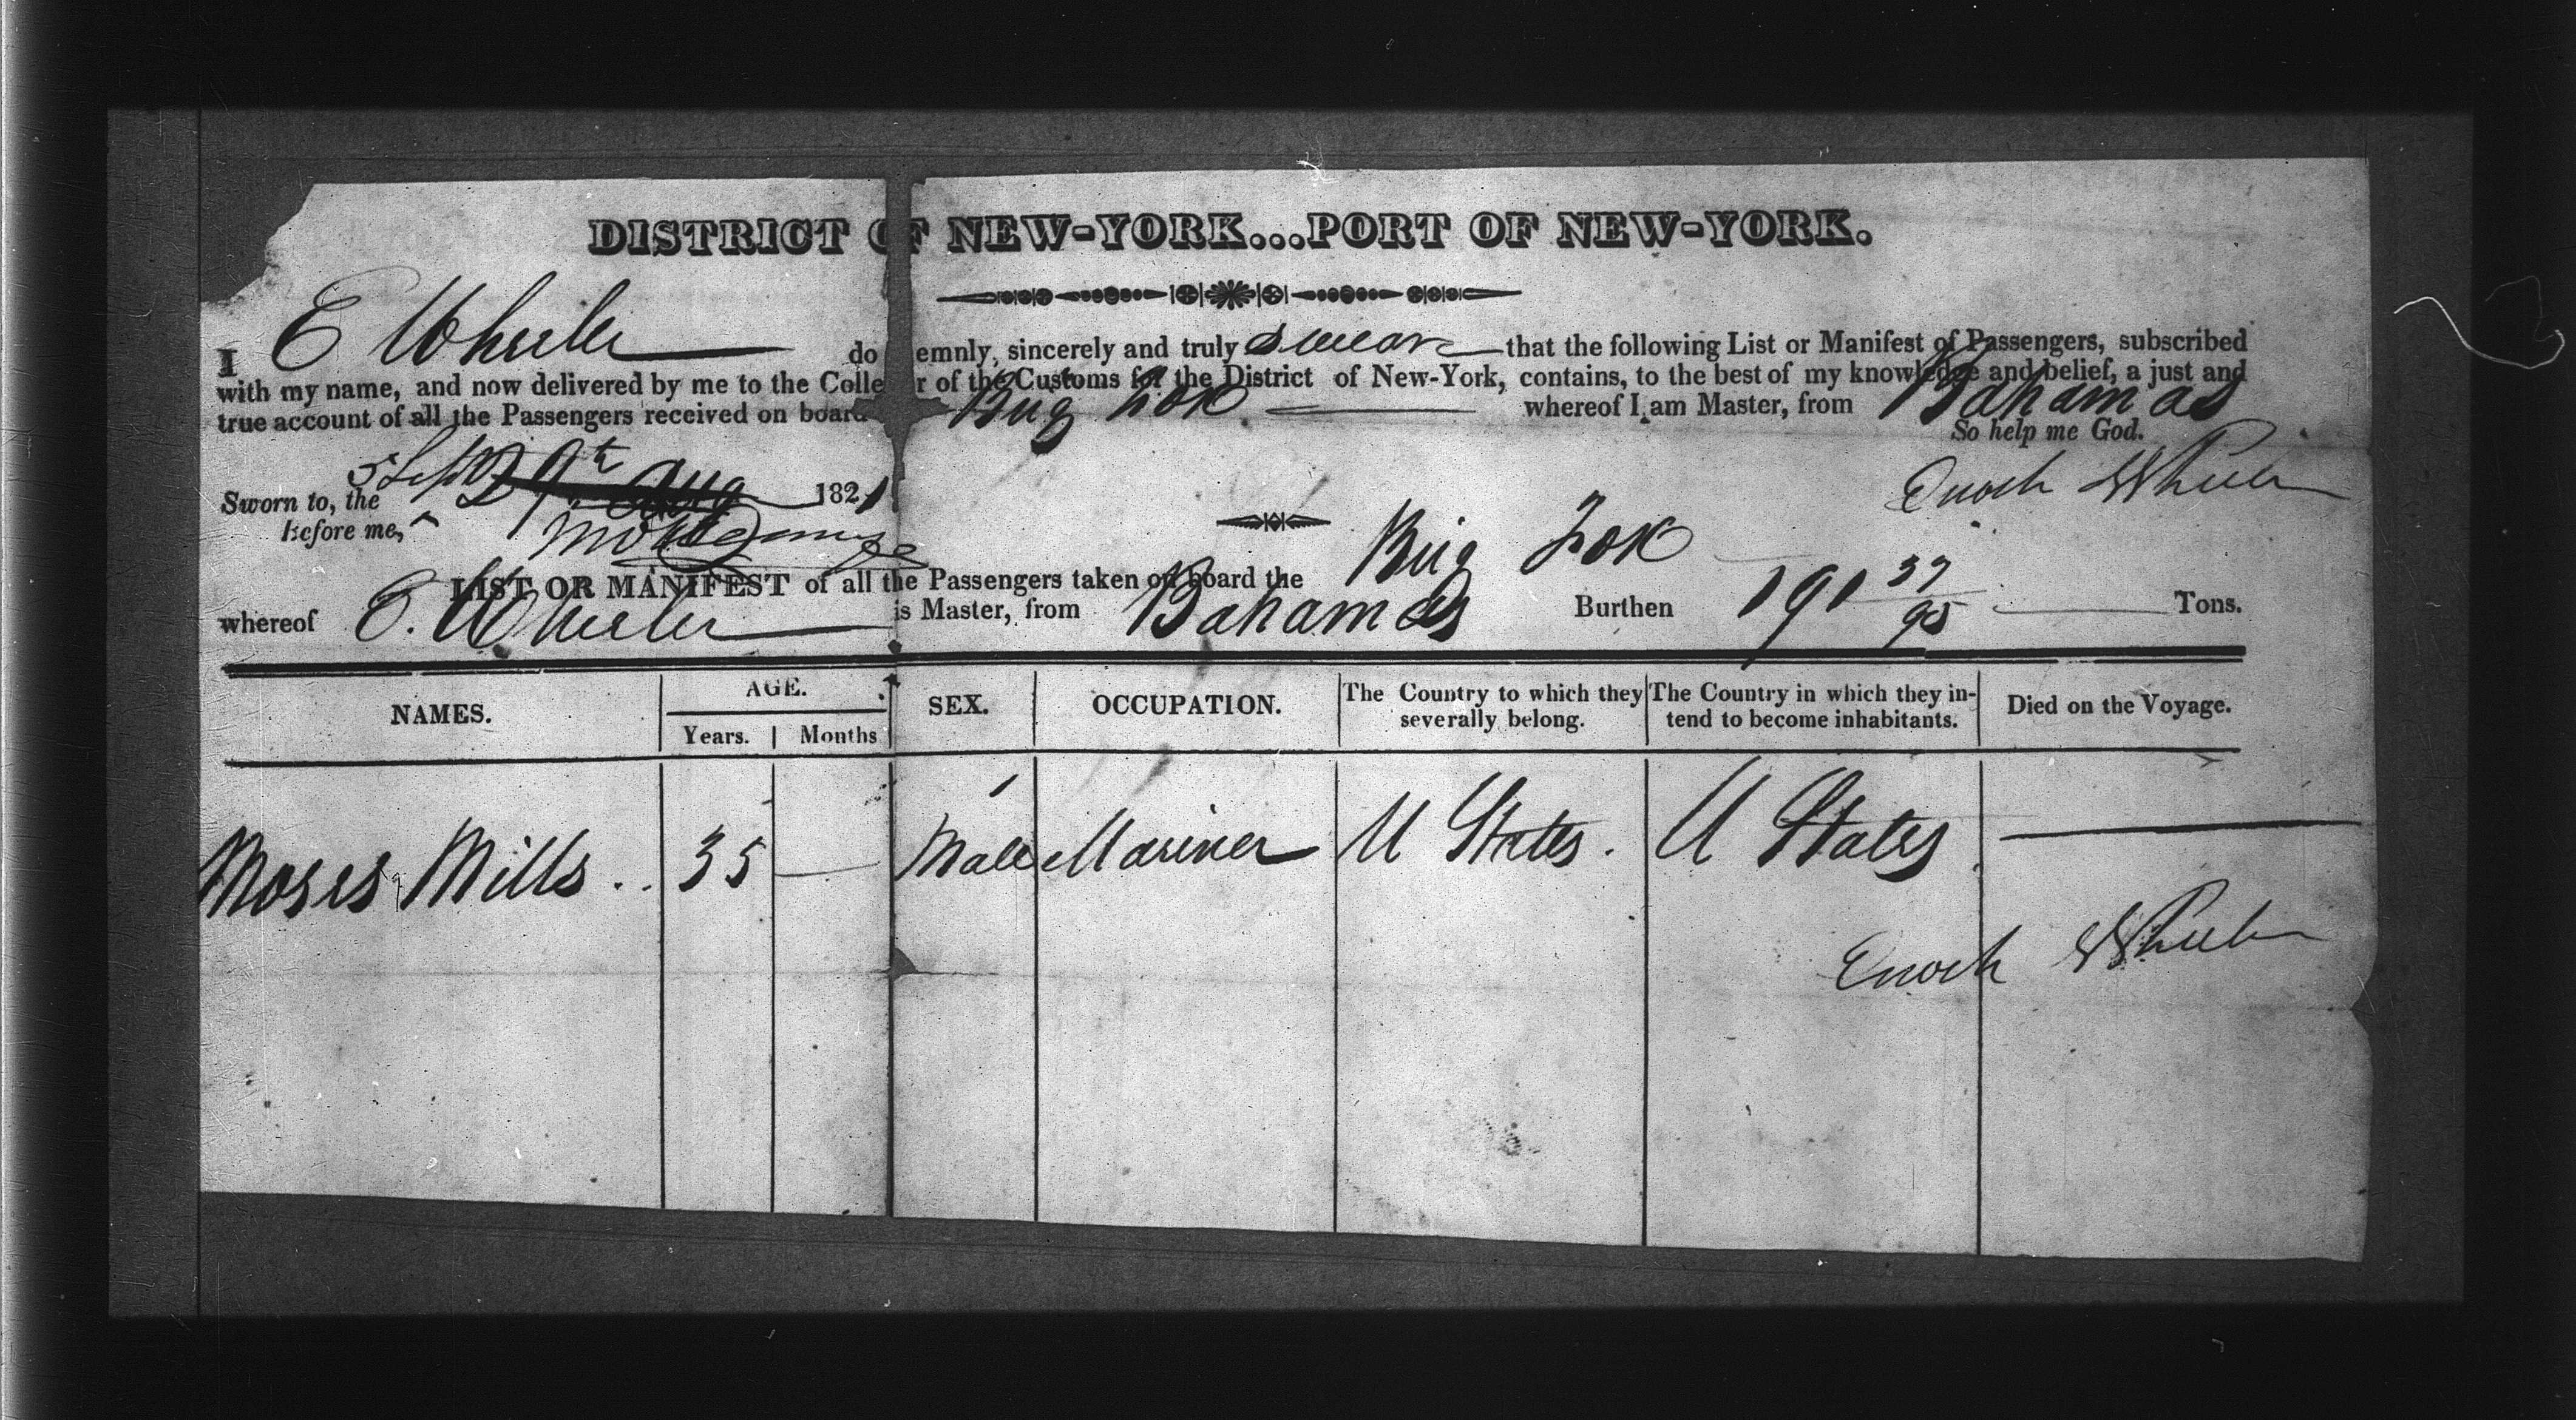 DISTRICT OF NEW-YORK...PORT OF NEW-YORK.
I E Wheeler do emnly, sincerely and truly swear that the following List or Manifest of Passengers, subscribed
with my name, and now delivered by me to the Colle r of the Customs for the District of New-York, contains, to the best of my knowledge and belief, a just and
true account of all the Passengers received on board Brig whereof I am Master, from Bahamas
So help me God.
5 Sept 29th Aug 1821
Sworn to, the
Before me,
Enoch Wheeler
LIST OR MANIFEST of all the Passengers taken on board the Brig
whereof E. Wheeler is Master, from Bahamas Burthen 191 37/95 Tons.
NAMES. AGE. SEX. OCCUPATION. The Country to which they severally belong. The Country in which they intend to become inhabitants. Died on the Voyage.
Years. Months
Moses Mills .. 35 — Male Mariner U States. U States.
Enoch Wheeler